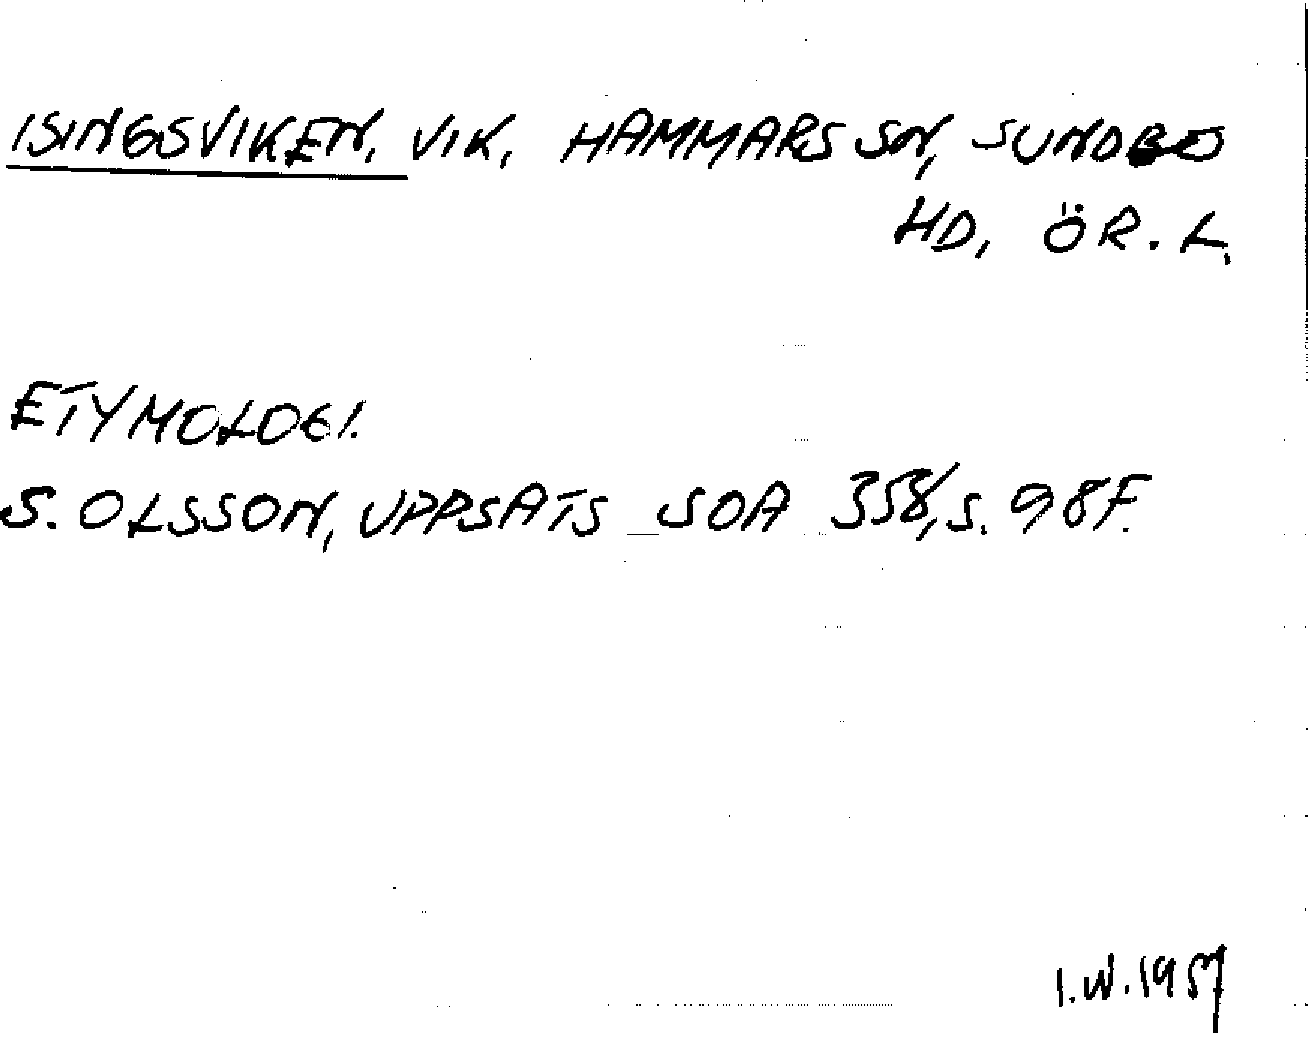 ISINGSVIKEN, VIK, HAMMARS SN, SUNDBO
HD, ÖR. L.
ETYMOLOGI.
S. OLSSON, UPPSATS SOA 358, S. 98F.
I.W. 1957